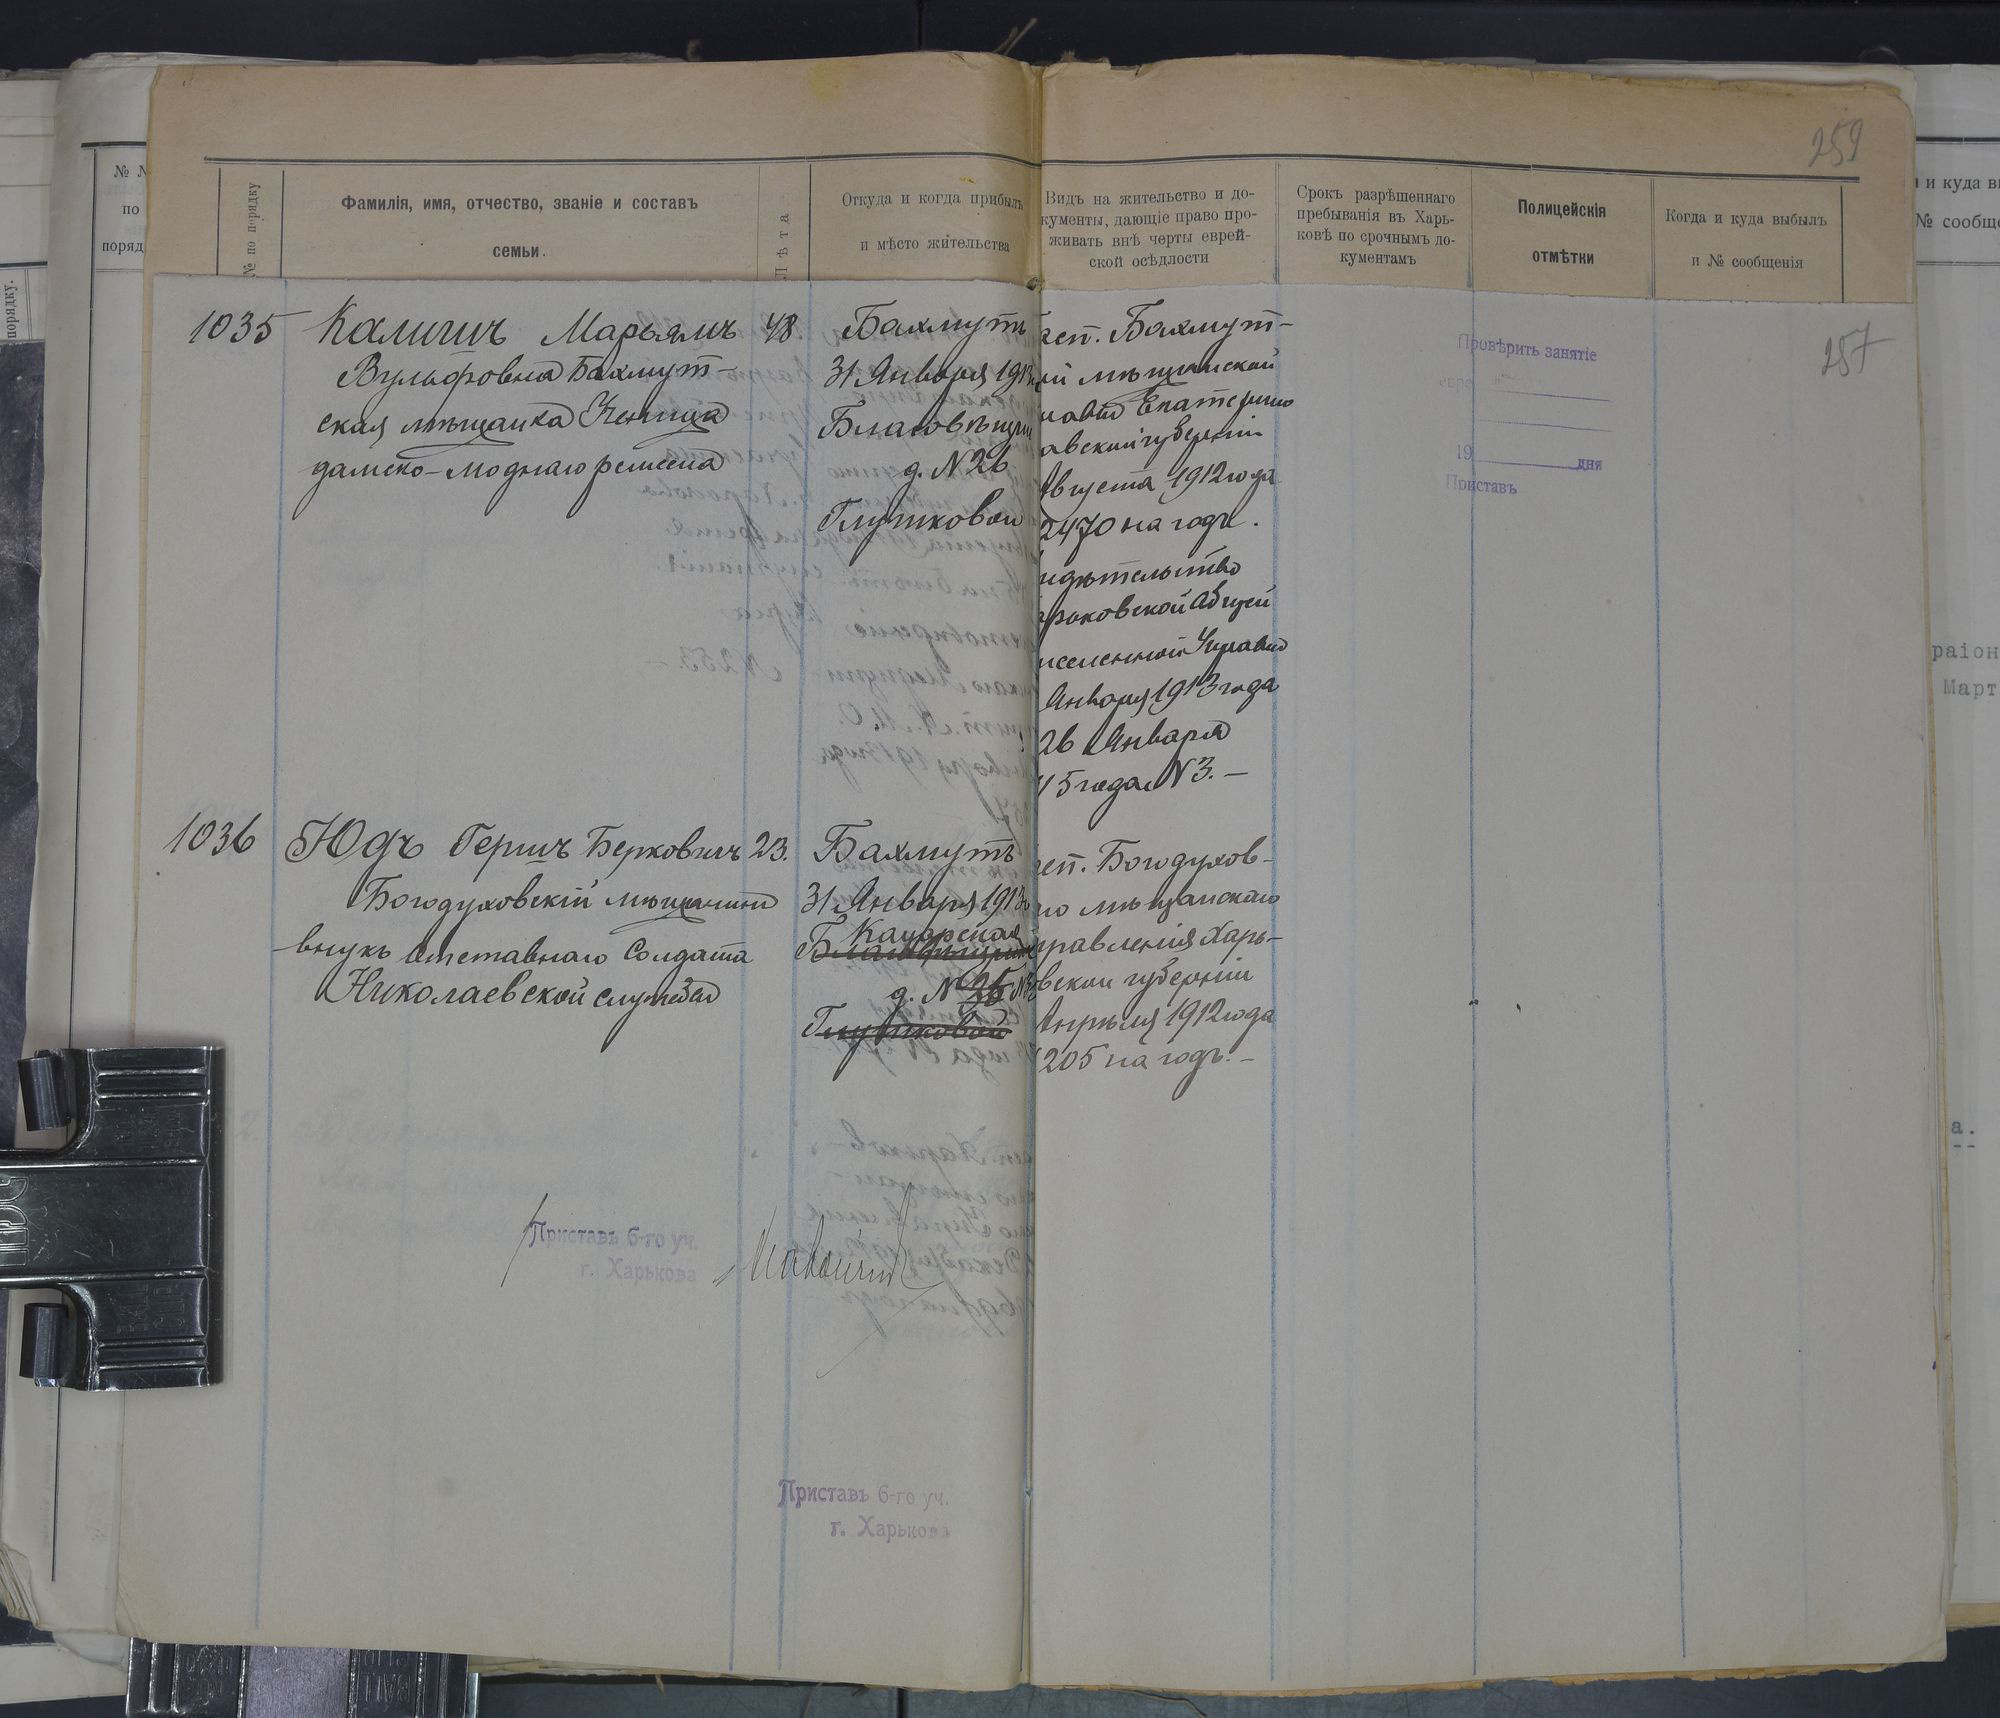 259
№ по порядку
Фамилія, имя, отчество, званіе и составъ
семьи.
Лѣта
Откуда и когда прибылъ
и мѣсто жительства
Видъ на жительство и до-
кументы, дающіе право про-
живать внѣ черты еврей-
ской осѣдлости
Срокъ разрѣшеннаго
пребыванія въ Харь-
ковѣ по срочнымъ до-
кументамъ
Полицейскія
отмѣтки
Когда и куда выбылъ
и № сообщенія
257
1035
Марьямъ
Вульфовна Бахмут-
ская мѣщанка
дамско-моднаго ремесла
48
Бахмутъ
31 Января 1913
Благовѣщен
д. № 26
асп. Бахмут-
ой мѣщанской
Екатерино
авской губерніи
Августа 1912 года
2470 на годъ.
идѣтельство
арьковской
Января 1913 года
26 Января
15 года № 3. —
Провѣрить занятіе
19 дня
Приставъ
1036
Юдъ Гершъ Берковичъ
Богодуховскій мѣщанинъ
внукъ отставнаго Солдата
Николаевской службы
23.
Бахмутъ
31 Января 1913
д. №
асп. Богодухов-
го мѣщанскаго
правленія Харь-
овской губерніи
Апрѣля 1912 года
205 на годъ. —
Приставъ 6-го уч.
г. Харькова
Приставъ 6-го уч.
г. Харькова
№ №
по
поряд
порядку.
и куда вы
№ сообще
раіон
Март
а.